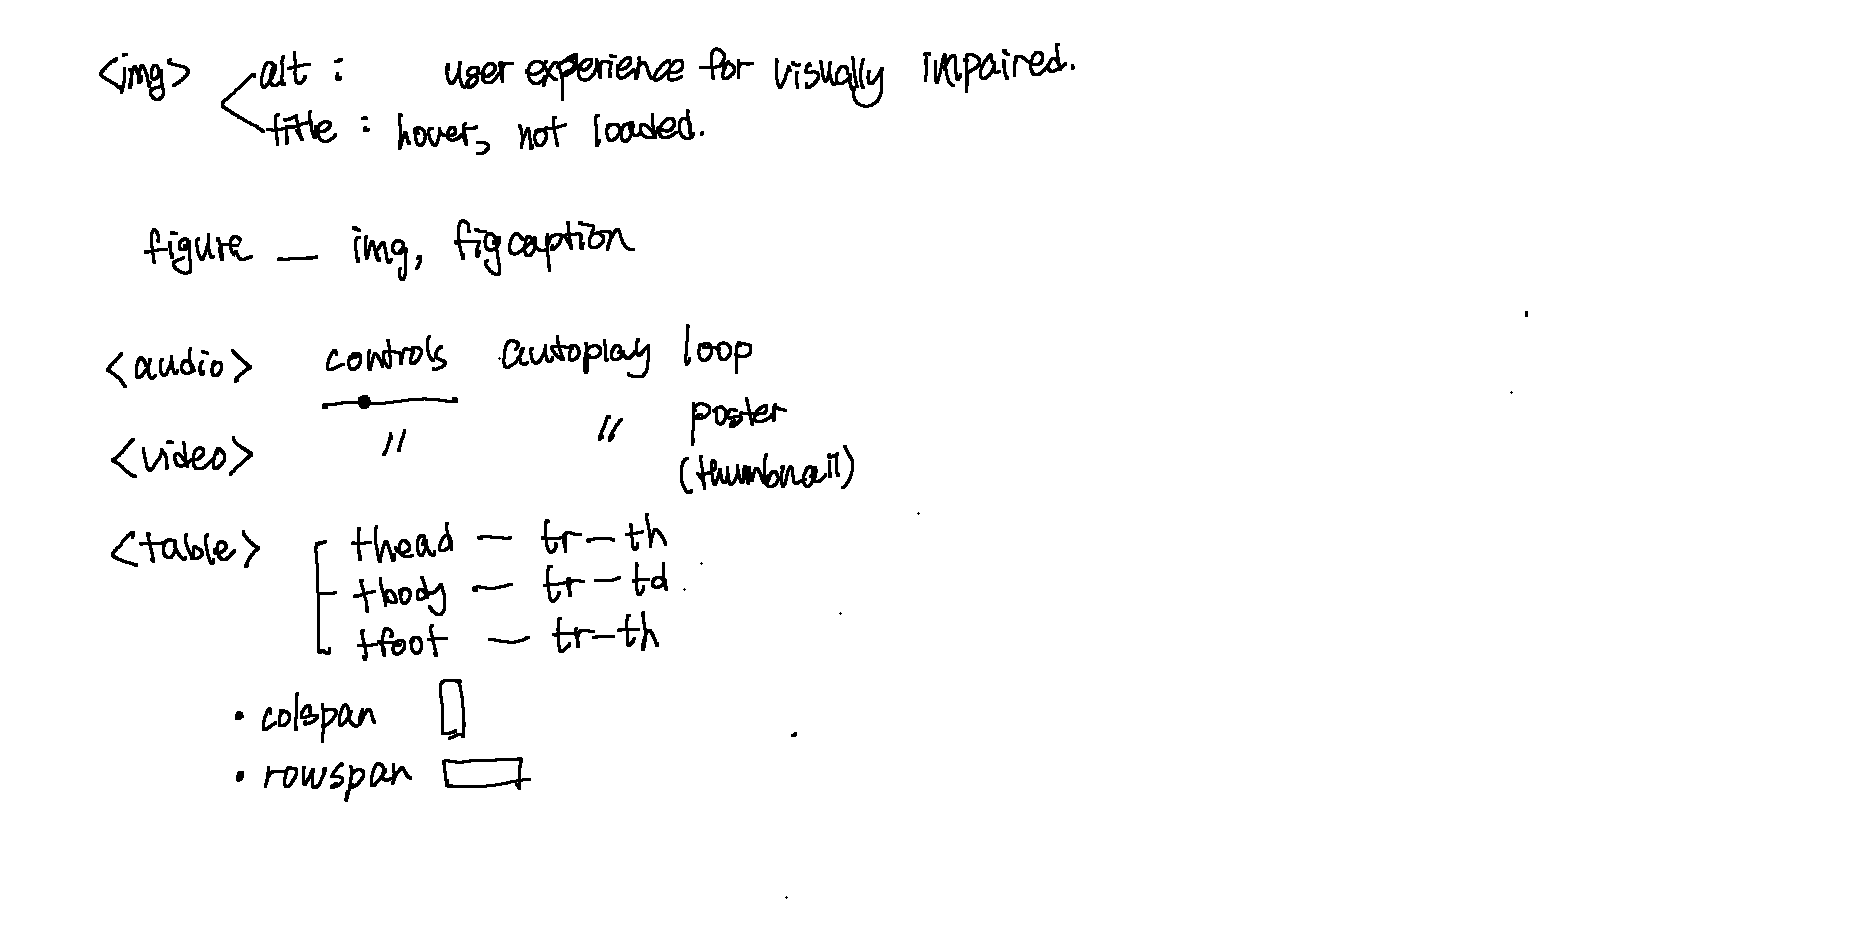 <img> alt : user experience for visually impaired.
title : hover, not loaded.
figure — img, figcaption
<audio> controls autoplay loop
<video> " " poster
(thumbnail)
<table> thead — tr — th
tbody — tr — td
tfoot — tr — th
• colspan
• rowspan